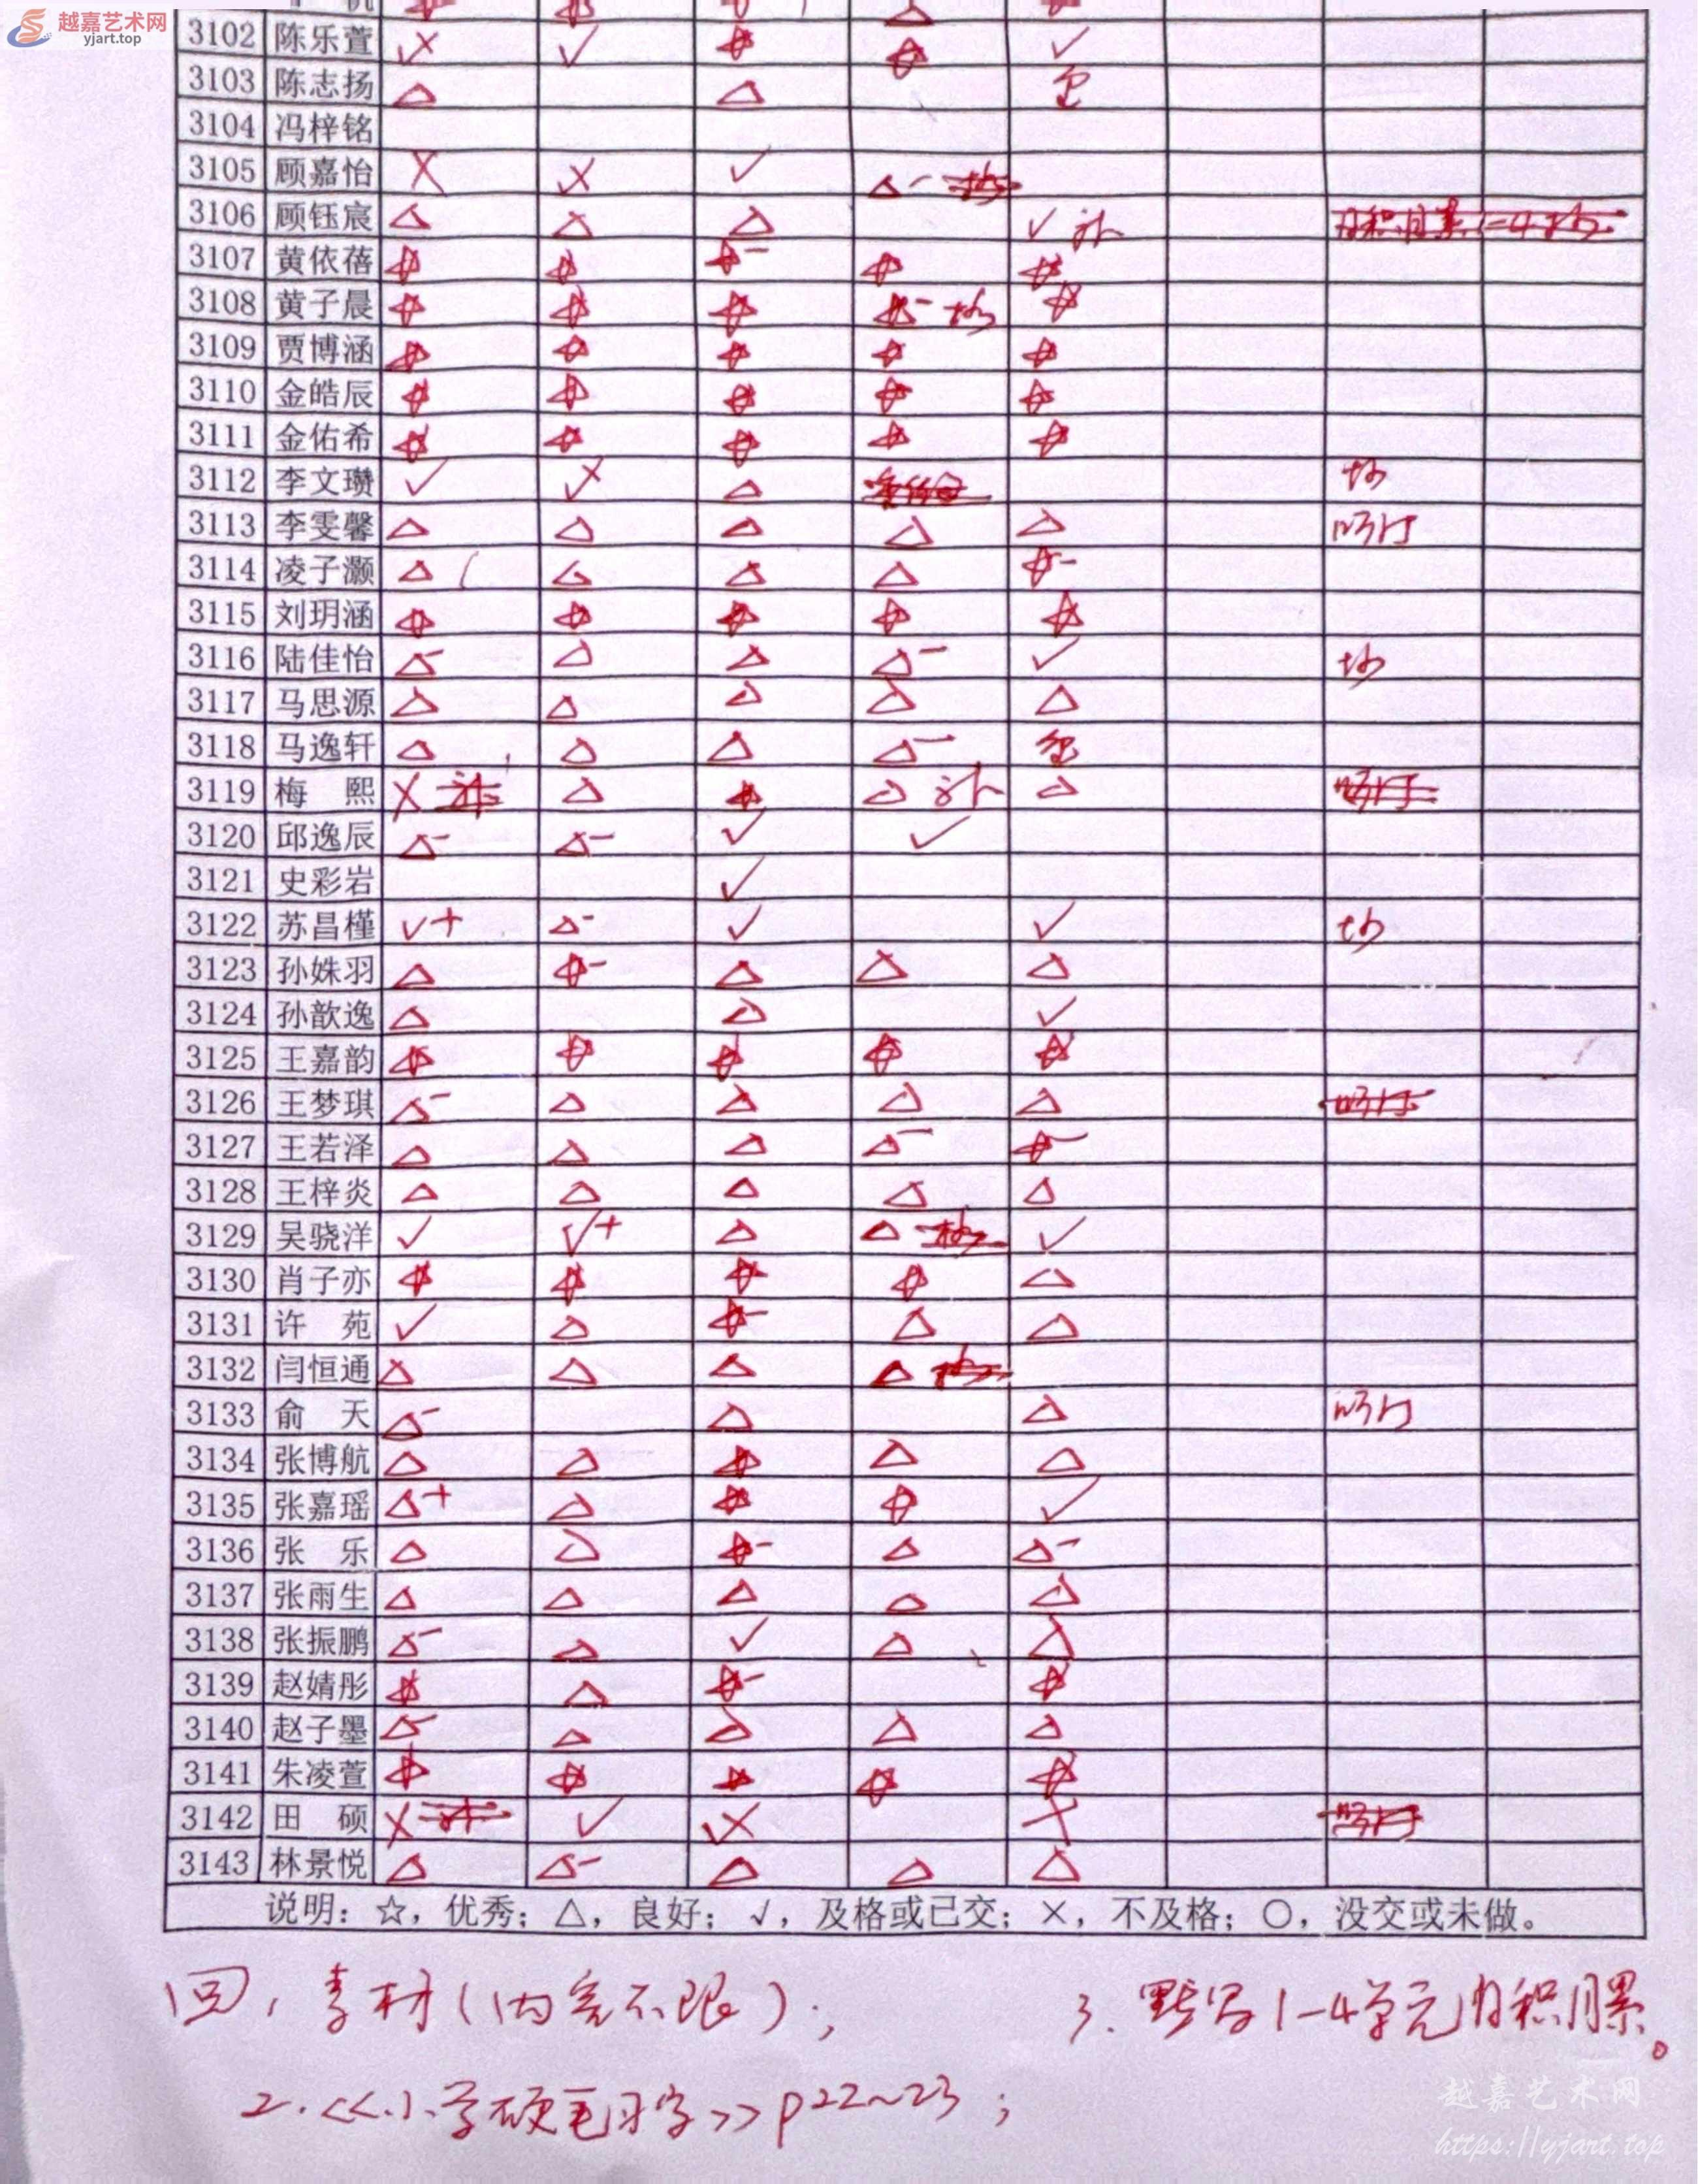 越嘉艺术网
yjart.top
3102 陈乐萱 ✓ ☆ ☆ ✓
3103 陈志扬 △ △
3104 冯梓铭
3105 顾嘉怡 × × ✓ △-
3106 顾钰宸 △ △ △ ✓ 补 日积月累1-4抄
3107 黄依蓓 ☆ ☆ ☆- ☆ ☆
3108 黄子晨 ☆ ☆ ☆ ☆- 抄 ☆
3109 贾博涵 ☆ ☆ ☆ ☆ ☆
3110 金皓辰 ☆ ☆ ☆ ☆ ☆
3111 金佑希 ☆ ☆ ☆ ☆ ☆
3112 李文瓒 ✓ △ 抄
3113 李雯馨 △ △ △ △ △
3114 凌子灏 △ △ △ △ ☆-
3115 刘玥涵 ☆ ☆ ☆ ☆ ☆
3116 陆佳怡 △- △ △ △- ✓ 抄
3117 马思源 △ △ △ △ △
3118 马逸轩 △ △ △ △-
3119 梅 熙 × 补 △ ☆ △ 补 △
3120 邱逸辰 △- △- ✓ ✓
3121 史彩岩 ✓
3122 苏昌槿 ✓+ △- ✓ ✓ 抄
3123 孙姝羽 △ ☆- △ △ △
3124 孙歆逸 △ △ ✓
3125 王嘉韵 ☆ ☆ ☆ ☆ ☆
3126 王梦琪 △- △ △ △ △
3127 王若泽 △ △ △ △- ☆-
3128 王梓炎 △ △ △ △ △
3129 吴骁洋 ✓ ✓+ △ △- 抄 ✓
3130 肖子亦 ☆ ☆ ☆ ☆ △
3131 许 苑 ✓ △ ☆- △ △
3132 闫恒通 △ △ △ △ 抄
3133 俞 天 △- △ △
3134 张博航 △ △ ☆ △ △
3135 张嘉瑶 △+ △ ☆ ☆ ✓
3136 张 乐 △ △ ☆- △ △-
3137 张雨生 △ △ △ △ △
3138 张振鹏 △- △ ✓ △ △
3139 赵婧彤 ☆ △ ☆- ☆
3140 赵子墨 △- △ △ △ △
3141 朱凌萱 ☆ ☆ ☆ ☆ ☆
3142 田 硕 × 补 ✓ ×
3143 林景悦 △ △- △ △ △
说明：☆，优秀；△，良好；√，及格或已交；×，不及格；○，没交或未做。
回，素材（内容不限）； 3. 默写1-4单元日积月累。
2.《小学硬毛习字》P22~23；
越嘉艺术网
https://yjart.top